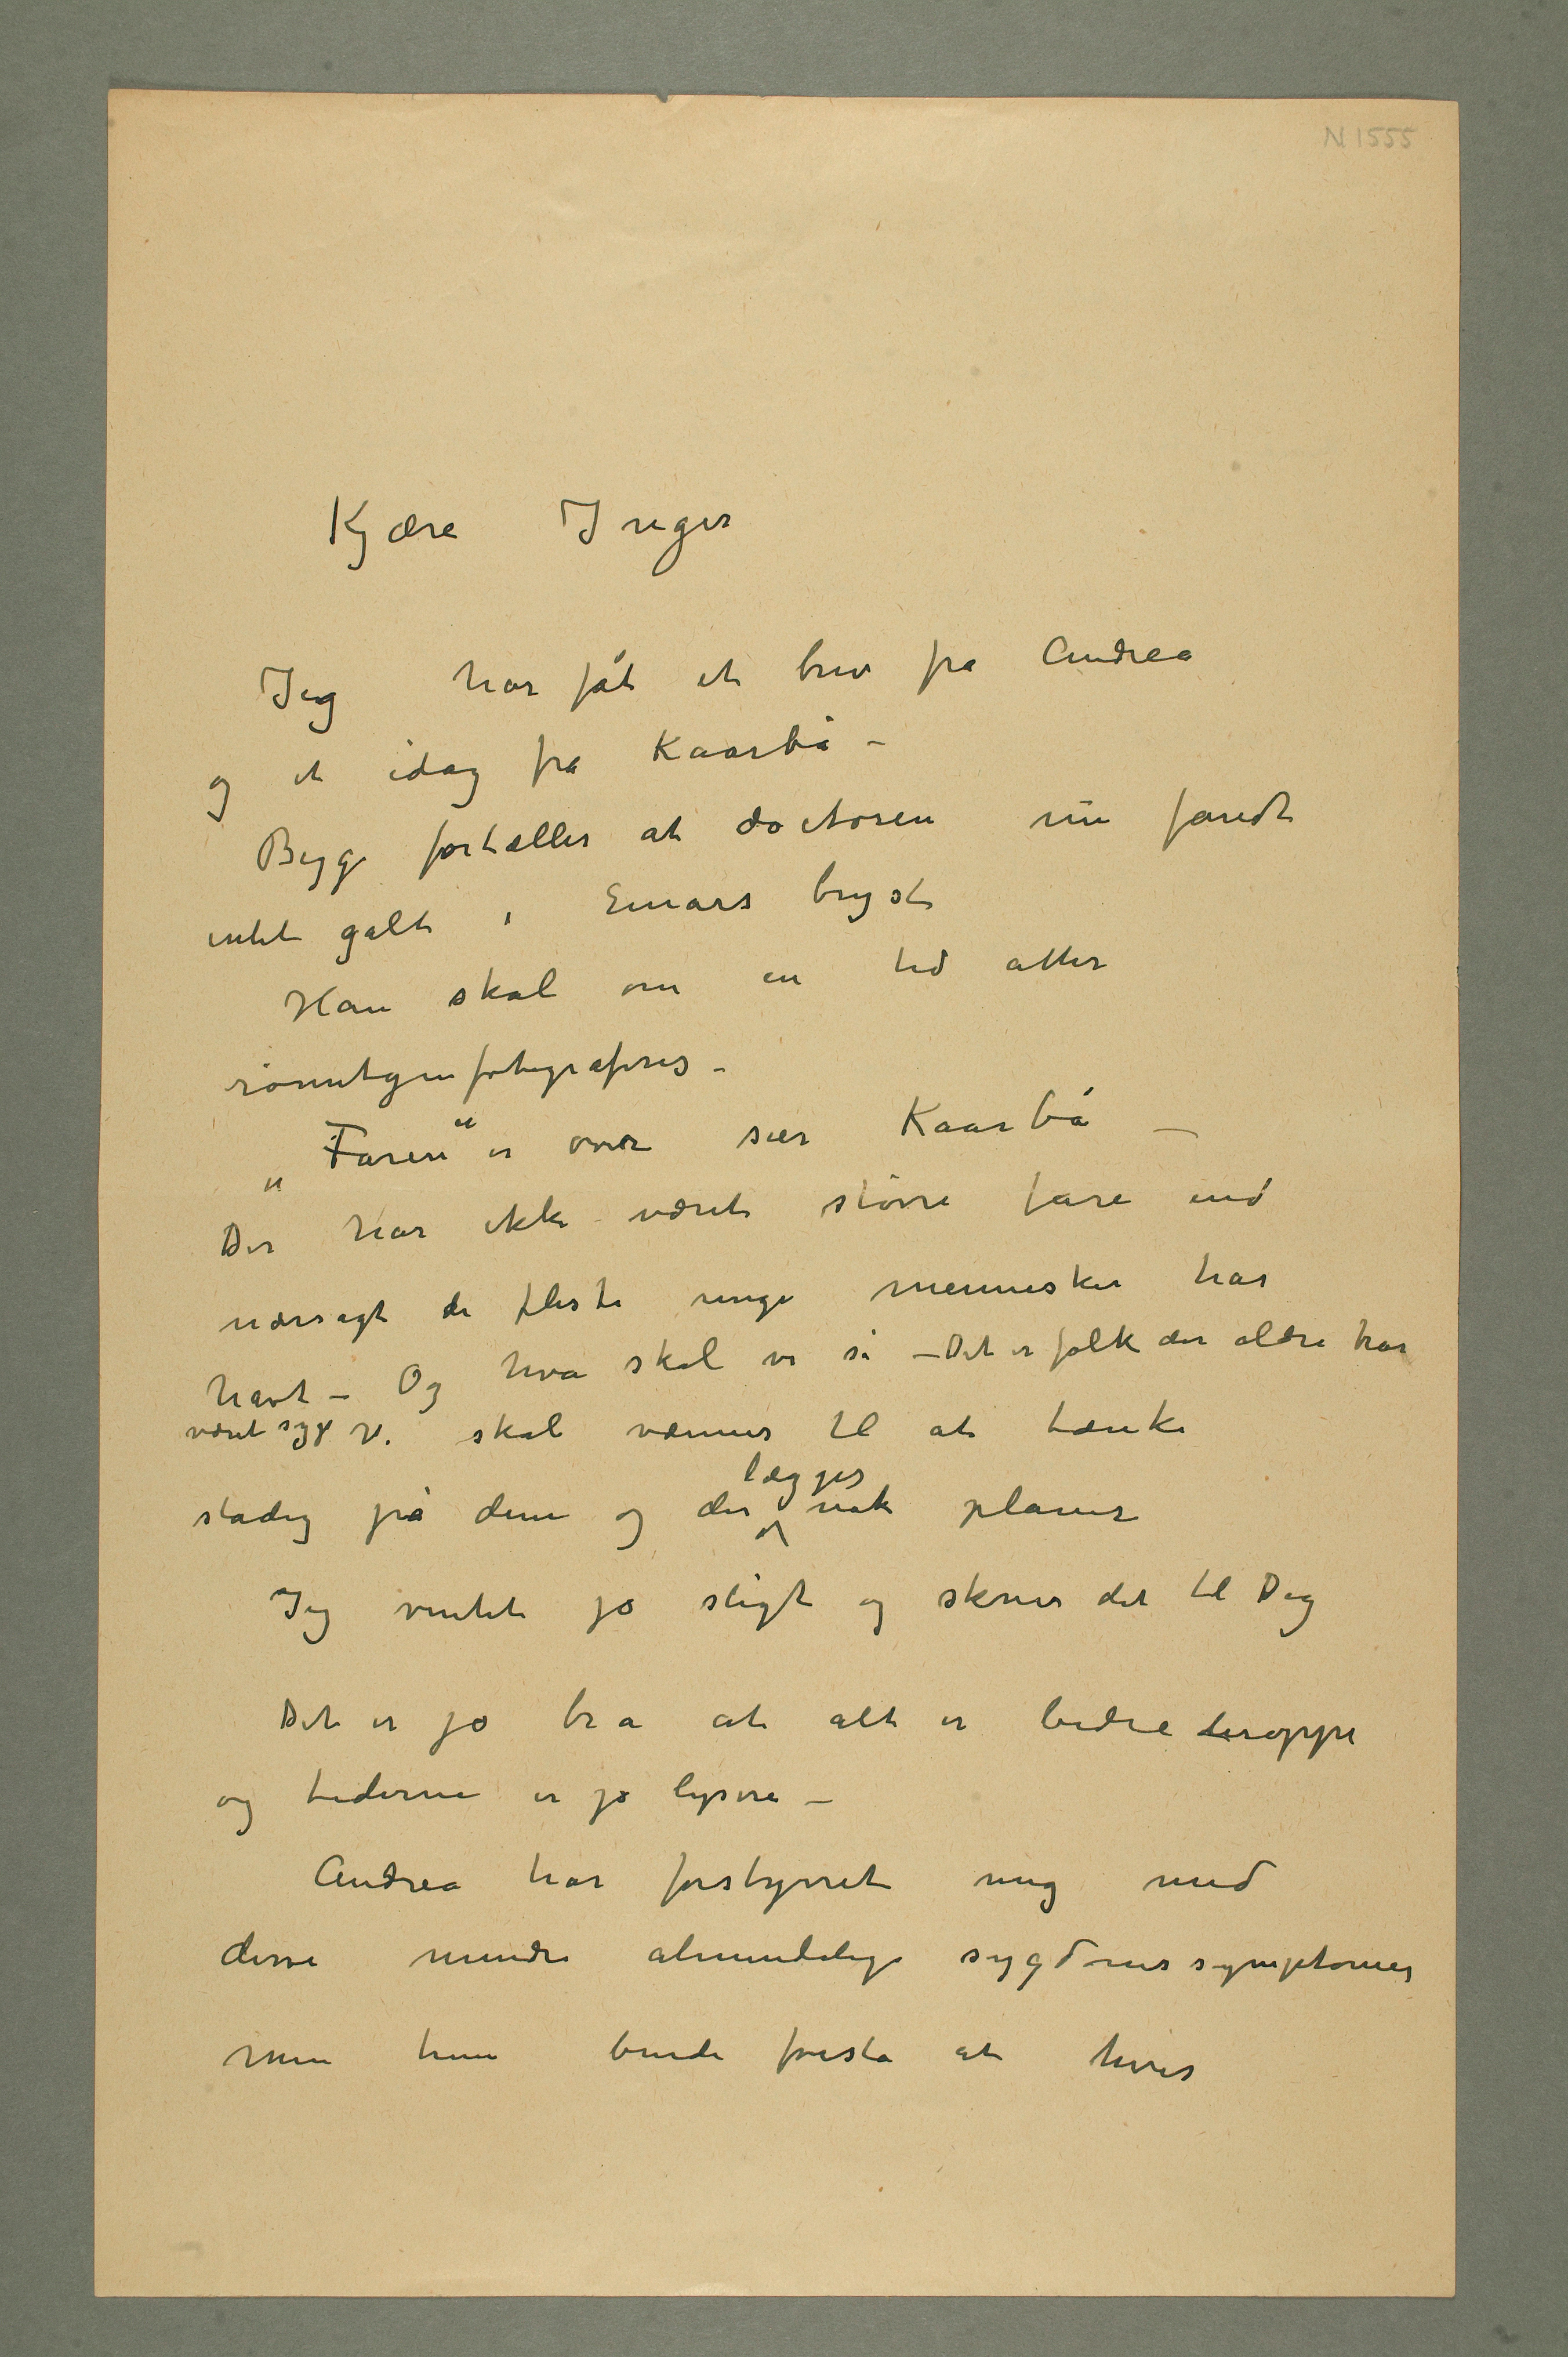 N 1555
Kjære Inger
Jeg har fåt et brev fra Andrea
og et idag fra Kaarbå –
Begge fortæller at doctoren nu fandt
intet galt i Einars bryst
Han skal om en tid atter
rønntgenfotograferes –
„Faren“ er over sier Kaarbå –
Der har ikke været større fare end
nærsagt de fleste unge mennesker har
havt – Og hva skal vi si – Det er folk der aldri har
været syge Vi skal vænnes til at tænke
stadig på dem og der lægges nok planer
Jeg ventet jo sligt og skrev det til Dig
Det er jo bra at alt er bedre deroppe
og tiderne er jo lysere –
Andrea har forstyrret mig med
disse mindre almindelige sygdomssymptomer
men hun burde forstå at hvis